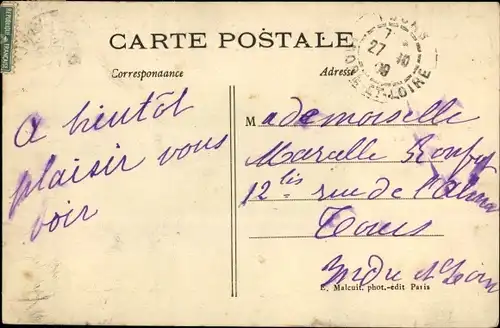 CARTE POSTALE
Correspondance
Adresse
7
27 10
09
ET-LOIRE
A bientôt
plaisir vous
voir
Mademoiselle
Marcelle
12 bis rue de l'Alma
Tours
Indre et Loire
E. Malcuit, phot.-édit Paris